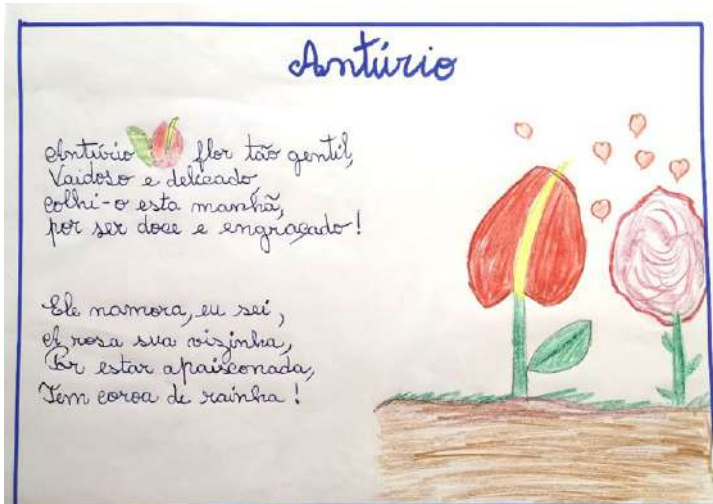 Antúrio
Antúrio flor tão gentil,
Vaidoso e delicado
colhi-o esta manhã,
por ser doce e engraçado!
Ele namora, eu sei,
A rosa sua vizinha,
Por estar apaixonada,
Tem coroa de rainha!